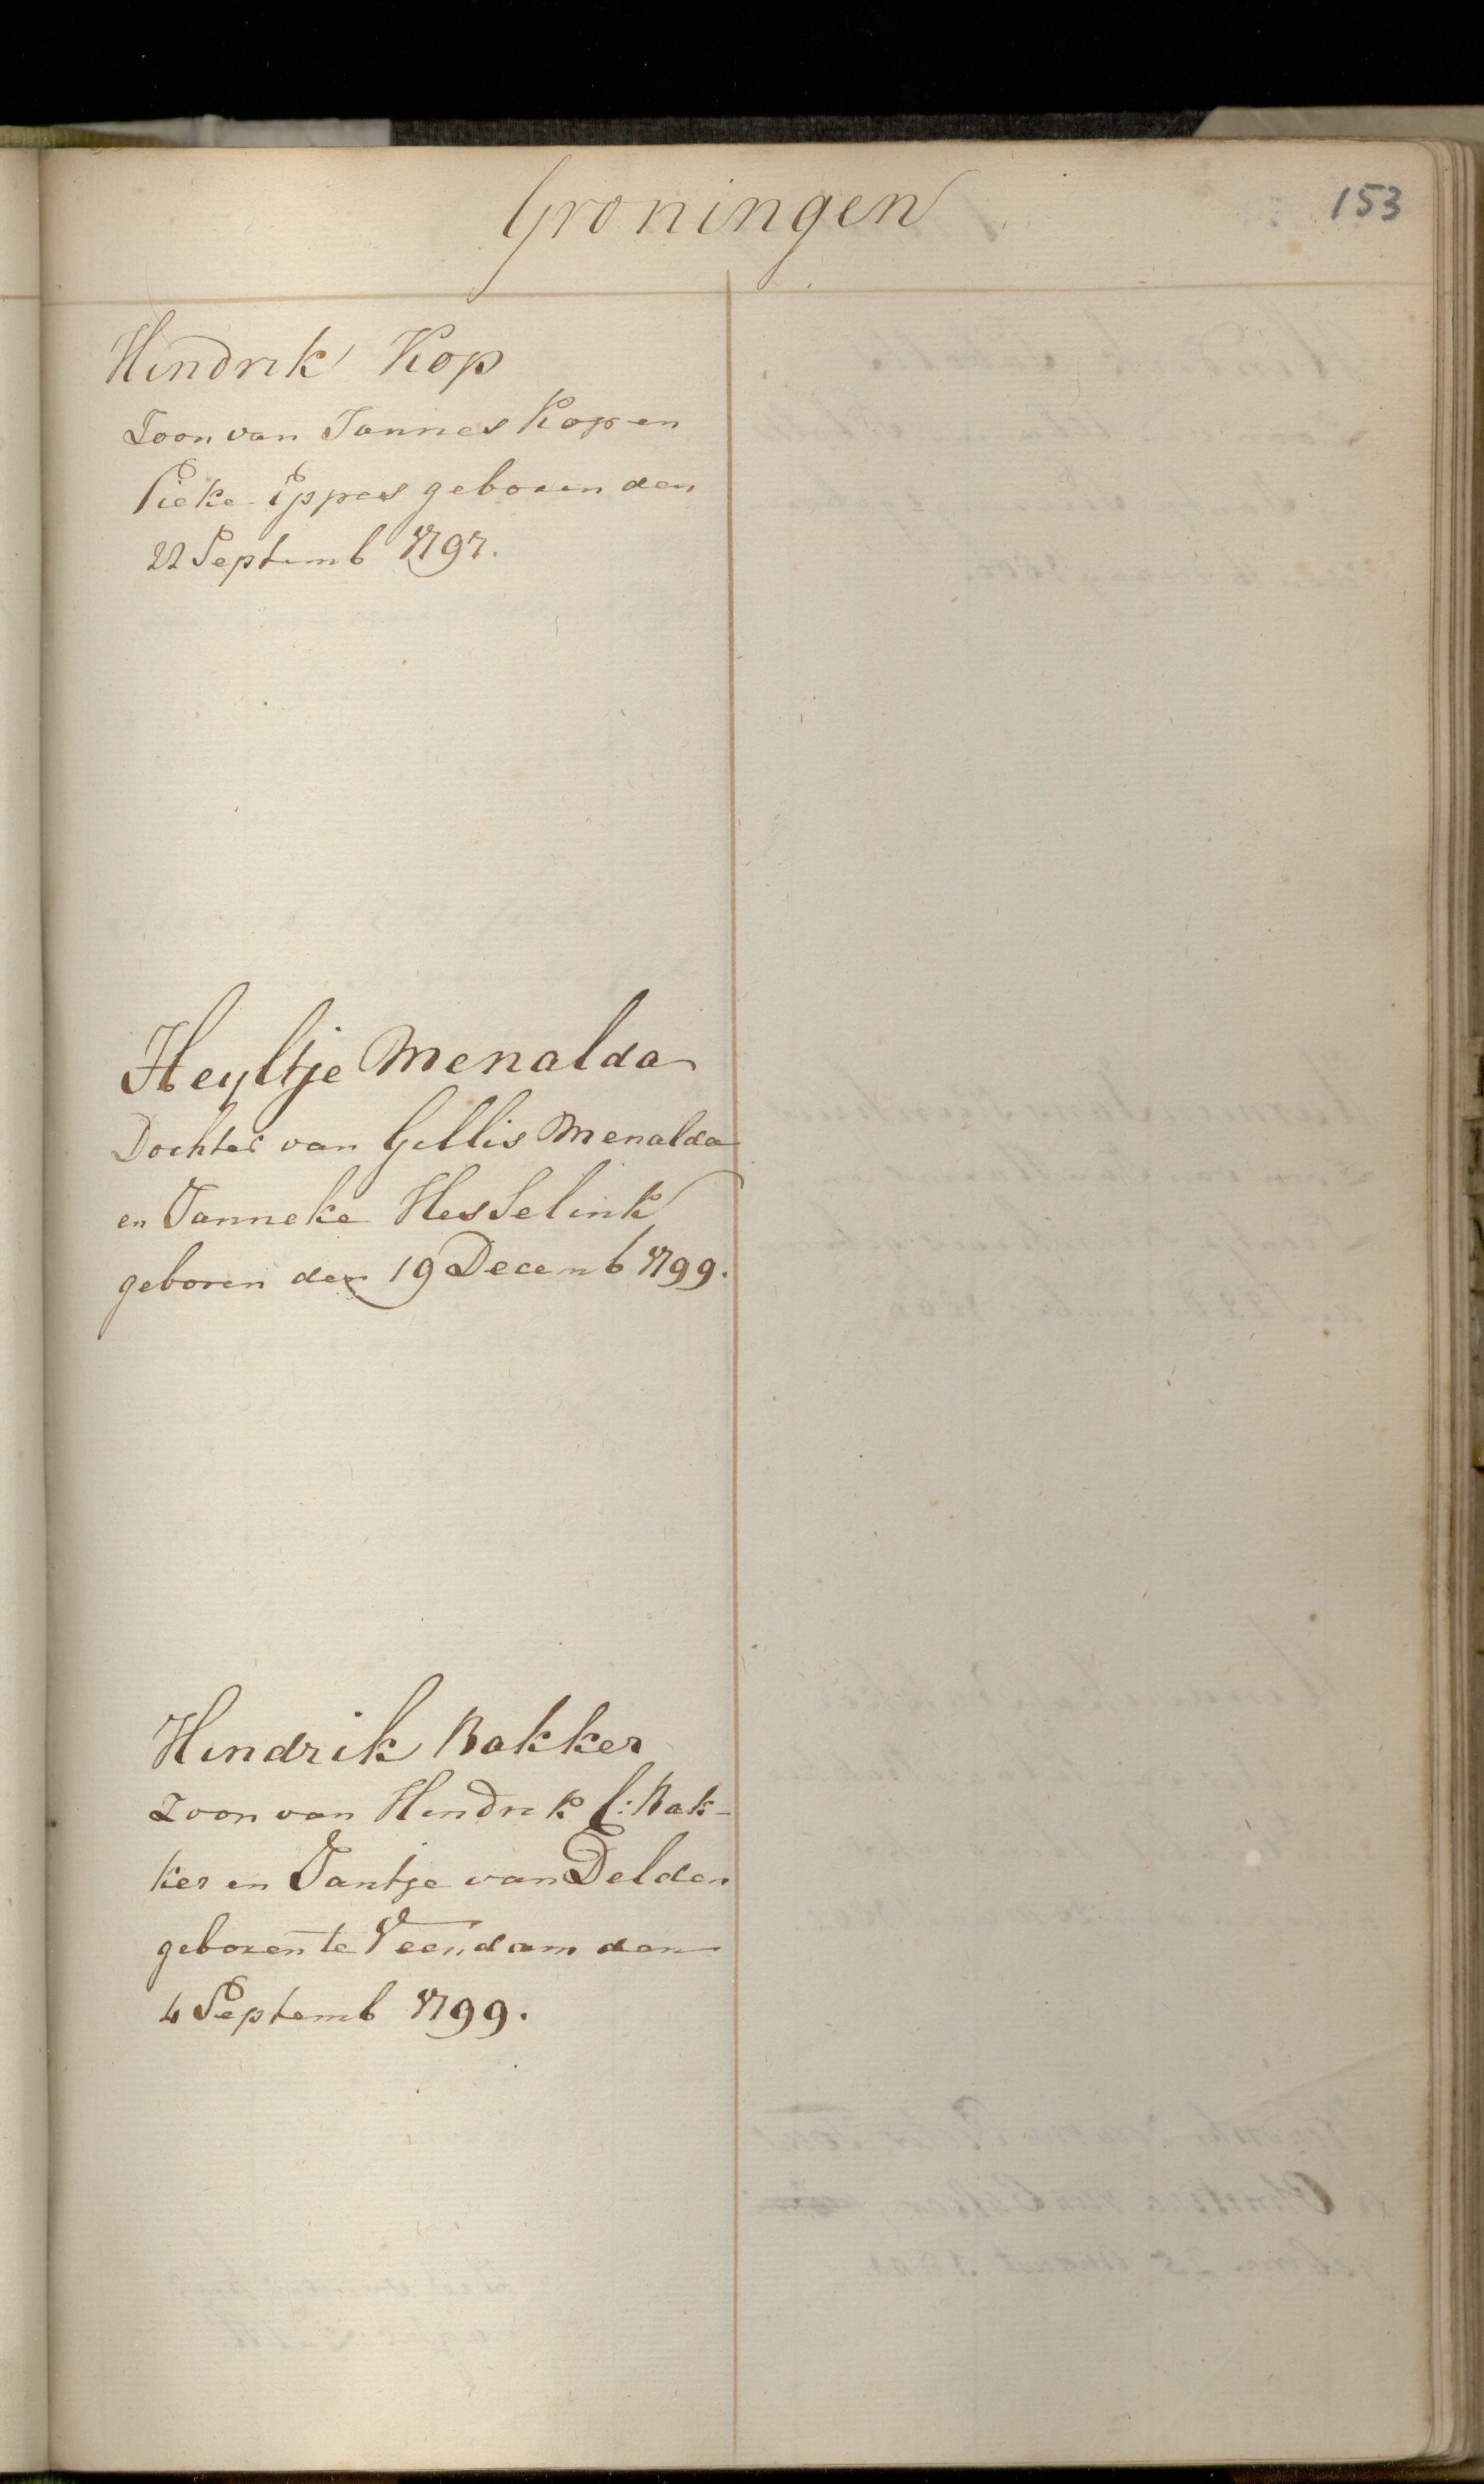 Groningen
153
Hindrik Kop
Zoon van Jannes Kop en
Pieke Ippes geboren den
22 Septemb 1797.
Heyltje Menalda
Dochter van Gillis Menalda
en Janneke Hesselink
geboren den 19 Decemb 1799.
Hendrik Bakker
Zoon van Hendrik C: Bak-
ker en Jantje van Delden
geboren te Veendam den
4 Septemb 1799.